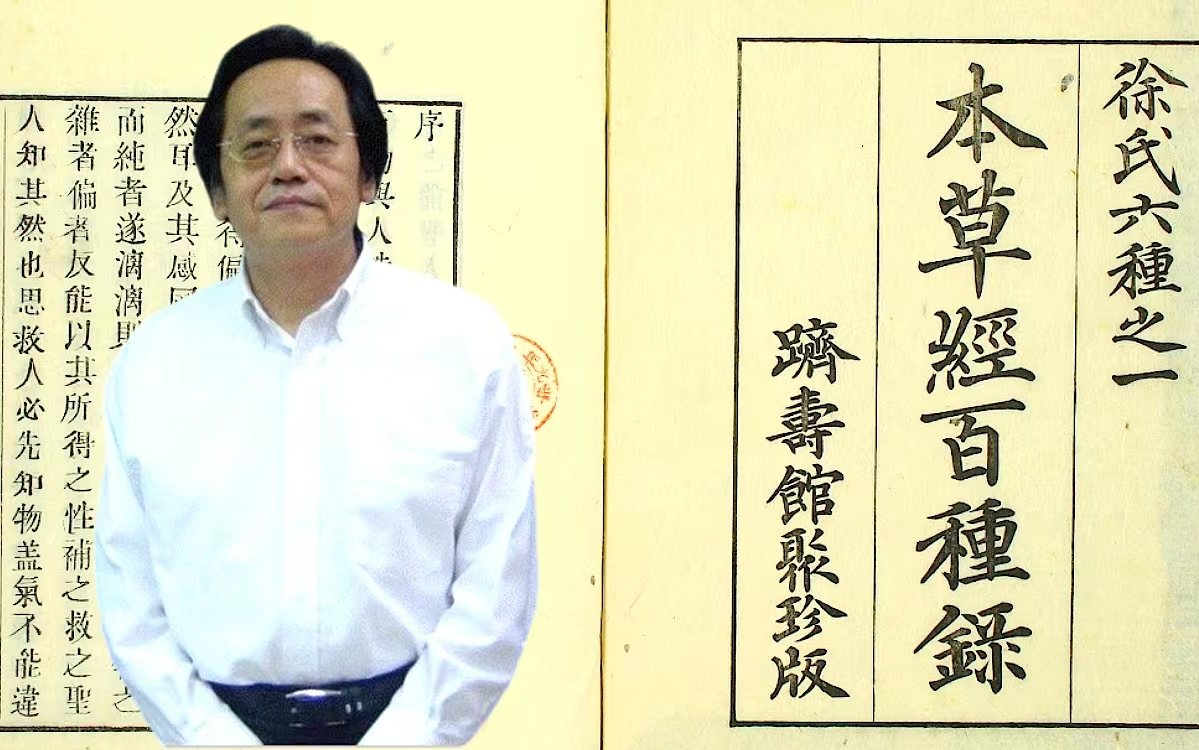 徐氏六種之一
本草經百種錄
躋壽館聚珍版
序
與人
得偏
然耳及其感
而純者遂漓漓則
之
雜者偏者反能以其所得之性補之救之聖
人知其然也思救人必先知物盖氣不能違